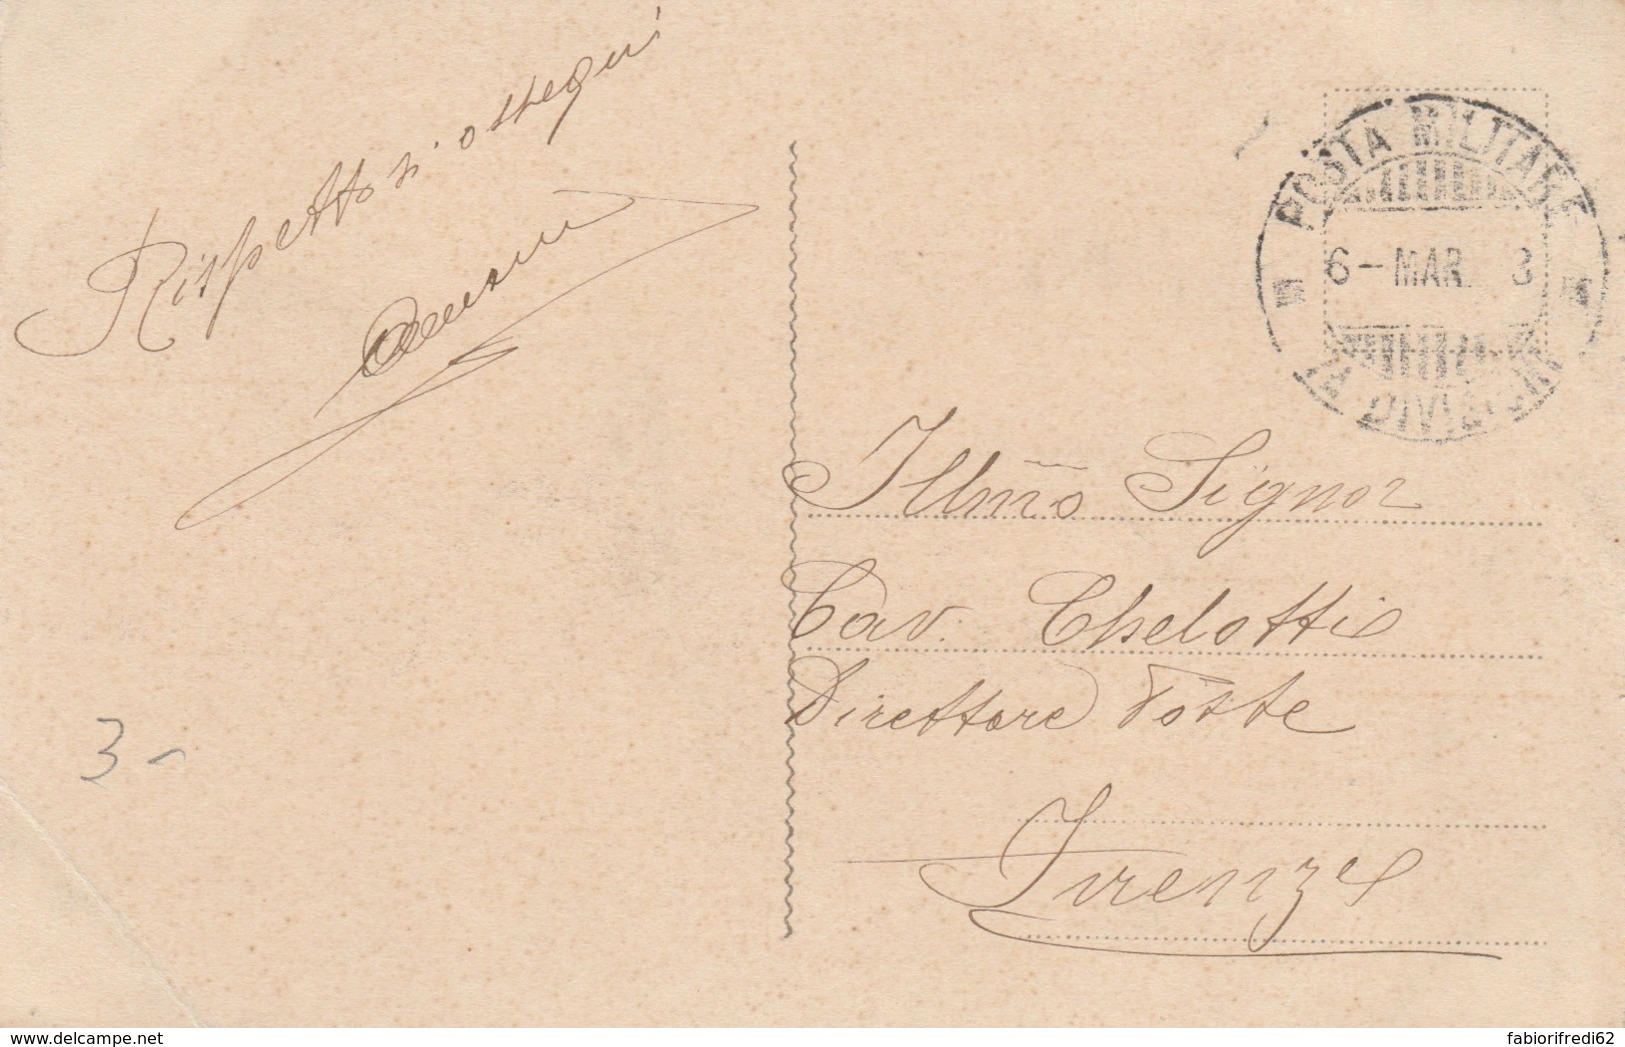 Rispettosi ossequi
POSTA MILITARE
6 - MAR. 3
DIVISIONE
Illmo Signor
Cav. Chelotti
Direttore Poste
Firenze
3 -
www.delcampe.net
fabiorifredi62